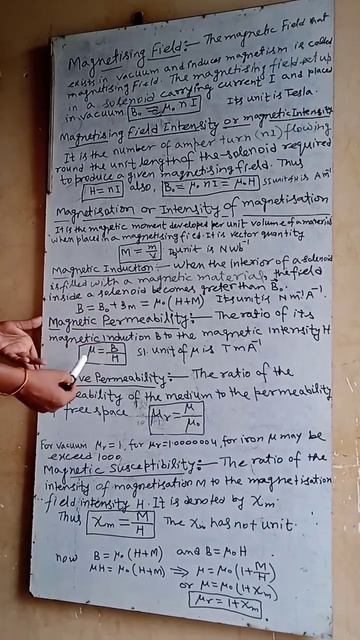 Magnetising Field:- The magnetic Field that
exists in vacuum and induces magnetism is called
magnetising Field. The magnetising field set up
in a solenoid carrying current I and placed
in vacuum B₀ = μ₀ nI Its unit is Tesla.
Magnetising Field Intensity or magnetic Intensity
It is the number of amper turn (nI) flowing
round the unit length of the solenoid required
to produce a given magnetising field. Thus
H = nI also, B₀ = μ₀ nI = μ₀H SI unit of H is Am⁻¹
Magnetisation or Intensity of magnetisation
It is the magnetic moment developed per unit volume of a material
when placed in a magnetising field it is vector quantity
M = m/V Its unit is N Wb⁻¹
Magnetic Induction:- when the interior of a solenoid
is filled with a magnetic material, the field
inside a solenoid becomes greter than B₀.
B = B₀ + Bm = μ₀(H+M) Its unit is N m⁻¹A⁻¹.
Magnetic Permeability:- The ratio of its
magnetic induction B to the magnetic intensity H
μ = B/H SI unit of μ is TmA⁻¹
ve Permeability:- The ratio of the
eability of the medium to the permeability
free space μr = μ/μ₀
For vacuum μr = 1, for μr = 1.0000004, for iron μ may be
exceed 1000.
Magnetic Susceptibility:- The ratio of the
intensity of magnetisation M to the magnetisation
field intensity H. It is denoted by χm.
Thus χm = M/H The χm has not unit.
now B = μ₀(H+M) and B = μ₀H.
μH = μ₀(H+M) ⇒ μ = μ₀(1+M/H)
or μ = μ₀(1+χm)
μr = 1+χm